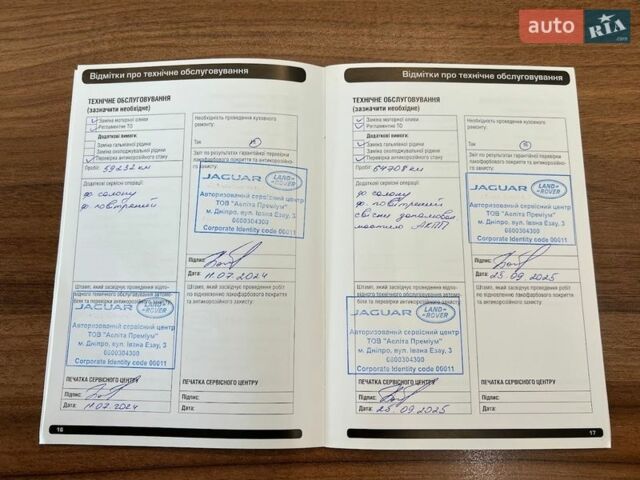 auto RIA.com
Відмітки про технічне обслуговування
ТЕХНІЧНЕ ОБСЛУГОВУВАННЯ
(зазначити необхідне)
Заміна моторної оливи
Регламентне ТО
Додаткові вимоги:
Заміна гальмівної рідини
Заміна охолоджувальної рідини
Перевірка антикорозійного стану
Пробіг: 59232 км
Додаткові сервісні операції:
ф салону
ф повітряний
Штамп, який засвідчує проведення відпо-
відного технічного обслуговування автомо-
біля та перевірки антикорозійного захисту:
JAGUAR LAND ROVER
Авторизований сервісний центр
ТОВ "Аеліта Преміум"
м. Дніпро, вул. Івана Езау, 3
0800304300
Corporate Identity code 00011
ПЕЧАТКА СЕРВІСНОГО ЦЕНТРУ
Підпис:
Дата: 11.07.2024
16
Необхідність проведення кузовного
ремонту:
Так
Звіт по результатах гарантійної перевірки
лакофарбового покриття та антикорозійно-
го захисту:
JAGUAR LAND ROVER
Авторизований сервісний центр
ТОВ "Аеліта Преміум"
м. Дніпро, вул. Івана Езау, 3
0800304300
Corporate Identity code 00011
Підпис:
Дата: 11.07.2024
Штамп, який засвідчує проведення робіт
по відновленню лакофарбового покриття та
антикорозійного захисту:
ПЕЧАТКА СЕРВІСНОГО ЦЕНТРУ
Підпис:
Дата:
Відмітки про технічне обслуговування
ТЕХНІЧНЕ ОБСЛУГОВУВАННЯ
(зазначити необхідне)
Заміна моторної оливи
Регламентне ТО
Додаткові вимоги:
Заміна гальмівної рідини
Заміна охолоджувальної рідини
Перевірка антикорозійного стану
Пробіг: 64708 км
Додаткові сервісні операції:
ф салону
ф повітряний
АКПП
Штамп, який засвідчує проведення відпо-
відного технічного обслуговування автомо-
біля та перевірки антикорозійного захисту:
JAGUAR LAND ROVER
Авторизований сервісний центр
ТОВ "Аеліта Преміум"
м. Дніпро, вул. Івана Езау, 3
0800304300
Corporate Identity code 00011
ПЕЧАТКА СЕРВІСНОГО ЦЕНТРУ
Підпис:
Дата: 25.09.2025
Необхідність проведення кузовного
ремонту:
Так
Звіт по результатах гарантійної перевірки
лакофарбового покриття та антикорозійно-
го захисту:
JAGUAR LAND ROVER
Авторизований сервісний центр
ТОВ "Аеліта Преміум"
м. Дніпро, вул. Івана Езау, 3
0800304300
Corporate Identity code 00011
Підпис:
Дата: 25.09.2025
Штамп, який засвідчує проведення робіт
по відновленню лакофарбового покриття та
антикорозійного захисту:
ПЕЧАТКА СЕРВІСНОГО ЦЕНТРУ
Підпис:
Дата:
17